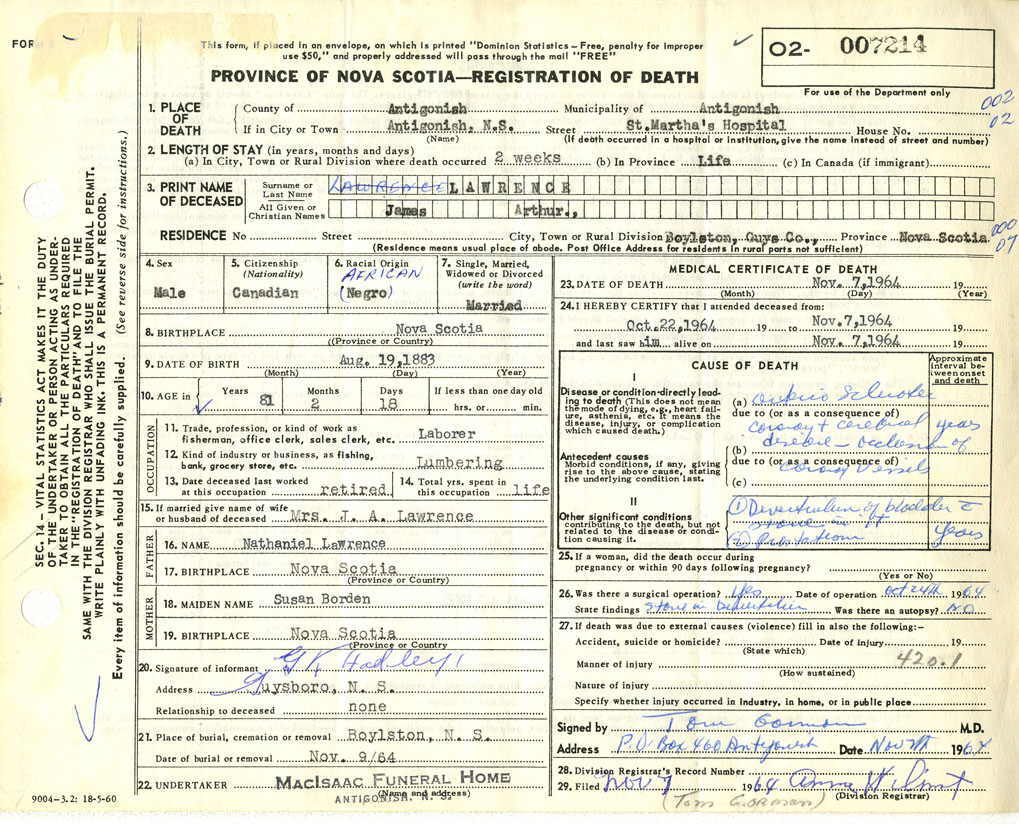 FOR
This form, if placed in an envelope, on which is printed "Dominion Statistics – Free, penalty for improper
use $50," and properly addressed will pass through the mail "FREE"
O2- 007214
For use of the Department only
PROVINCE OF NOVA SCOTIA—REGISTRATION OF DEATH
002
02
1. PLACE OF DEATH
County of Antigonish Municipality of Antigonish
If in City or Town Antigonish, N.S. Street St.Martha's Hospital House No.
(Name) (If death occurred in a hospital or institution, give the name instead of street and number)
2. LENGTH OF STAY (in years, months and days)
(a) In City, Town or Rural Division where death occurred 2 weeks (b) In Province Life (c) In Canada (if immigrant)
3. PRINT NAME OF DECEASED
Surname or Last Name LAWRENCE LAWRENCE
All Given or Christian Names James Arthur.,
000
07
RESIDENCE No Street City, Town or Rural Division Boylston, Guys Co., Province Nova Scotia
(Residence means usual place of abode. Post Office Address for residents in rural parts not sufficient)
4. Sex
Male
5. Citizenship
(Nationality)
Canadian
6. Racial Origin
AFRICAN
(Negro)
7. Single, Married,
Widowed or Divorced
(write the word)
Married
8. BIRTHPLACE Nova Scotia
((Province or Country)
9. DATE OF BIRTH Aug. 19,1883
(Month) (Day) (Year)
10. AGE in Years 81 Months 2 Days 18 If less than one day old
hrs. or min.
OCCUPATION
11. Trade, profession, or kind of work as
fisherman, office clerk, sales clerk, etc. Laborer
12. Kind of industry or business, as fishing,
bank, grocery store, etc. Lumbering
13. Date deceased last worked
at this occupation retired
14. Total yrs. spent in
this occupation life
15. If married give name of wife
or husband of deceased Mrs. J. A. Lawrence
FATHER
16. NAME Nathaniel Lawrence
17. BIRTHPLACE Nova Scotia
(Province or Country)
MOTHER
18. MAIDEN NAME Susan Borden
19. BIRTHPLACE Nova Scotia
(Province or Country
20. Signature of informant G K Hadley
Address Guysboro, N. S.
Relationship to deceased none
21. Place of burial, cremation or removal Boylston, N. S.
Date of burial or removal Nov. 9/64
22. UNDERTAKER MACISAAC FUNERAL HOME
(Name and address)
ANTIGONISH, N. S.
9004–3.2: 18-5-60
MEDICAL CERTIFICATE OF DEATH
23. DATE OF DEATH Nov. 7,1964 19
(Month) (Day) (Year)
24. I HEREBY CERTIFY that I attended deceased from:
Oct.22,1964 19 to Nov.7,1964 19
and last saw him alive on Nov. 7,1964 19
CAUSE OF DEATH
Approximate
interval be-
tween onset
and death
I
Disease or condition directly lead-
ing to death (This does not mean
the mode of dying, e.g., heart fail-
ure, asthenia, etc. It means the
disease, injury, or complication
which caused death.)
(a)
due to (or as a consequence of)
coronary + cerebral years
(b) disease – occlusion of
Antecedent causes
Morbid conditions, if any, giving
rise to the above cause, stating
the underlying condition last.
due to (or as a consequence of)
coronary vessels
(c)
II
Other significant conditions
contributing to the death, but not
related to the disease or condi-
tion causing it.
(1) Diverticulum of bladder c
stone in it years
(2)
25. If a woman, did the death occur during
pregnancy or within 90 days following pregnancy?
(Yes or No)
26. Was there a surgical operation? Yes Date of operation Oct 24th 1964
State findings Stone in Diverticulum Was there an autopsy? NO
27. If death was due to external causes (violence) fill in also the following:–
Accident, suicide or homicide? Date of injury 19
(State which)
420.1
Manner of injury
(How sustained)
Nature of injury
Specify whether injury occurred in industry, in home, or in public place
Signed by Tom Gorman M.D.
Address P.O. Box 460 Antigonish Date Nov 7th 1964
28. Division Registrar's Record Number
29. Filed Nov 7 1964 Anna
(Tom GORMAN) (Division Registrar)
SEC. 14 – VITAL STATISTICS ACT MAKES IT THE DUTY
OF THE UNDERTAKER OR PERSON ACTING AS UNDER-
TAKER TO OBTAIN ALL THE PARTICULARS REQUIRED
IN THE "REGISTRATION OF DEATH" AND TO FILE THE
SAME WITH THE DIVISION REGISTRAR WHO SHALL ISSUE THE BURIAL PERMIT.
WRITE PLAINLY WITH UNFADING INK. THIS IS A PERMANENT RECORD.
Every item of information should be carefully supplied. (See reverse side for instructions.)